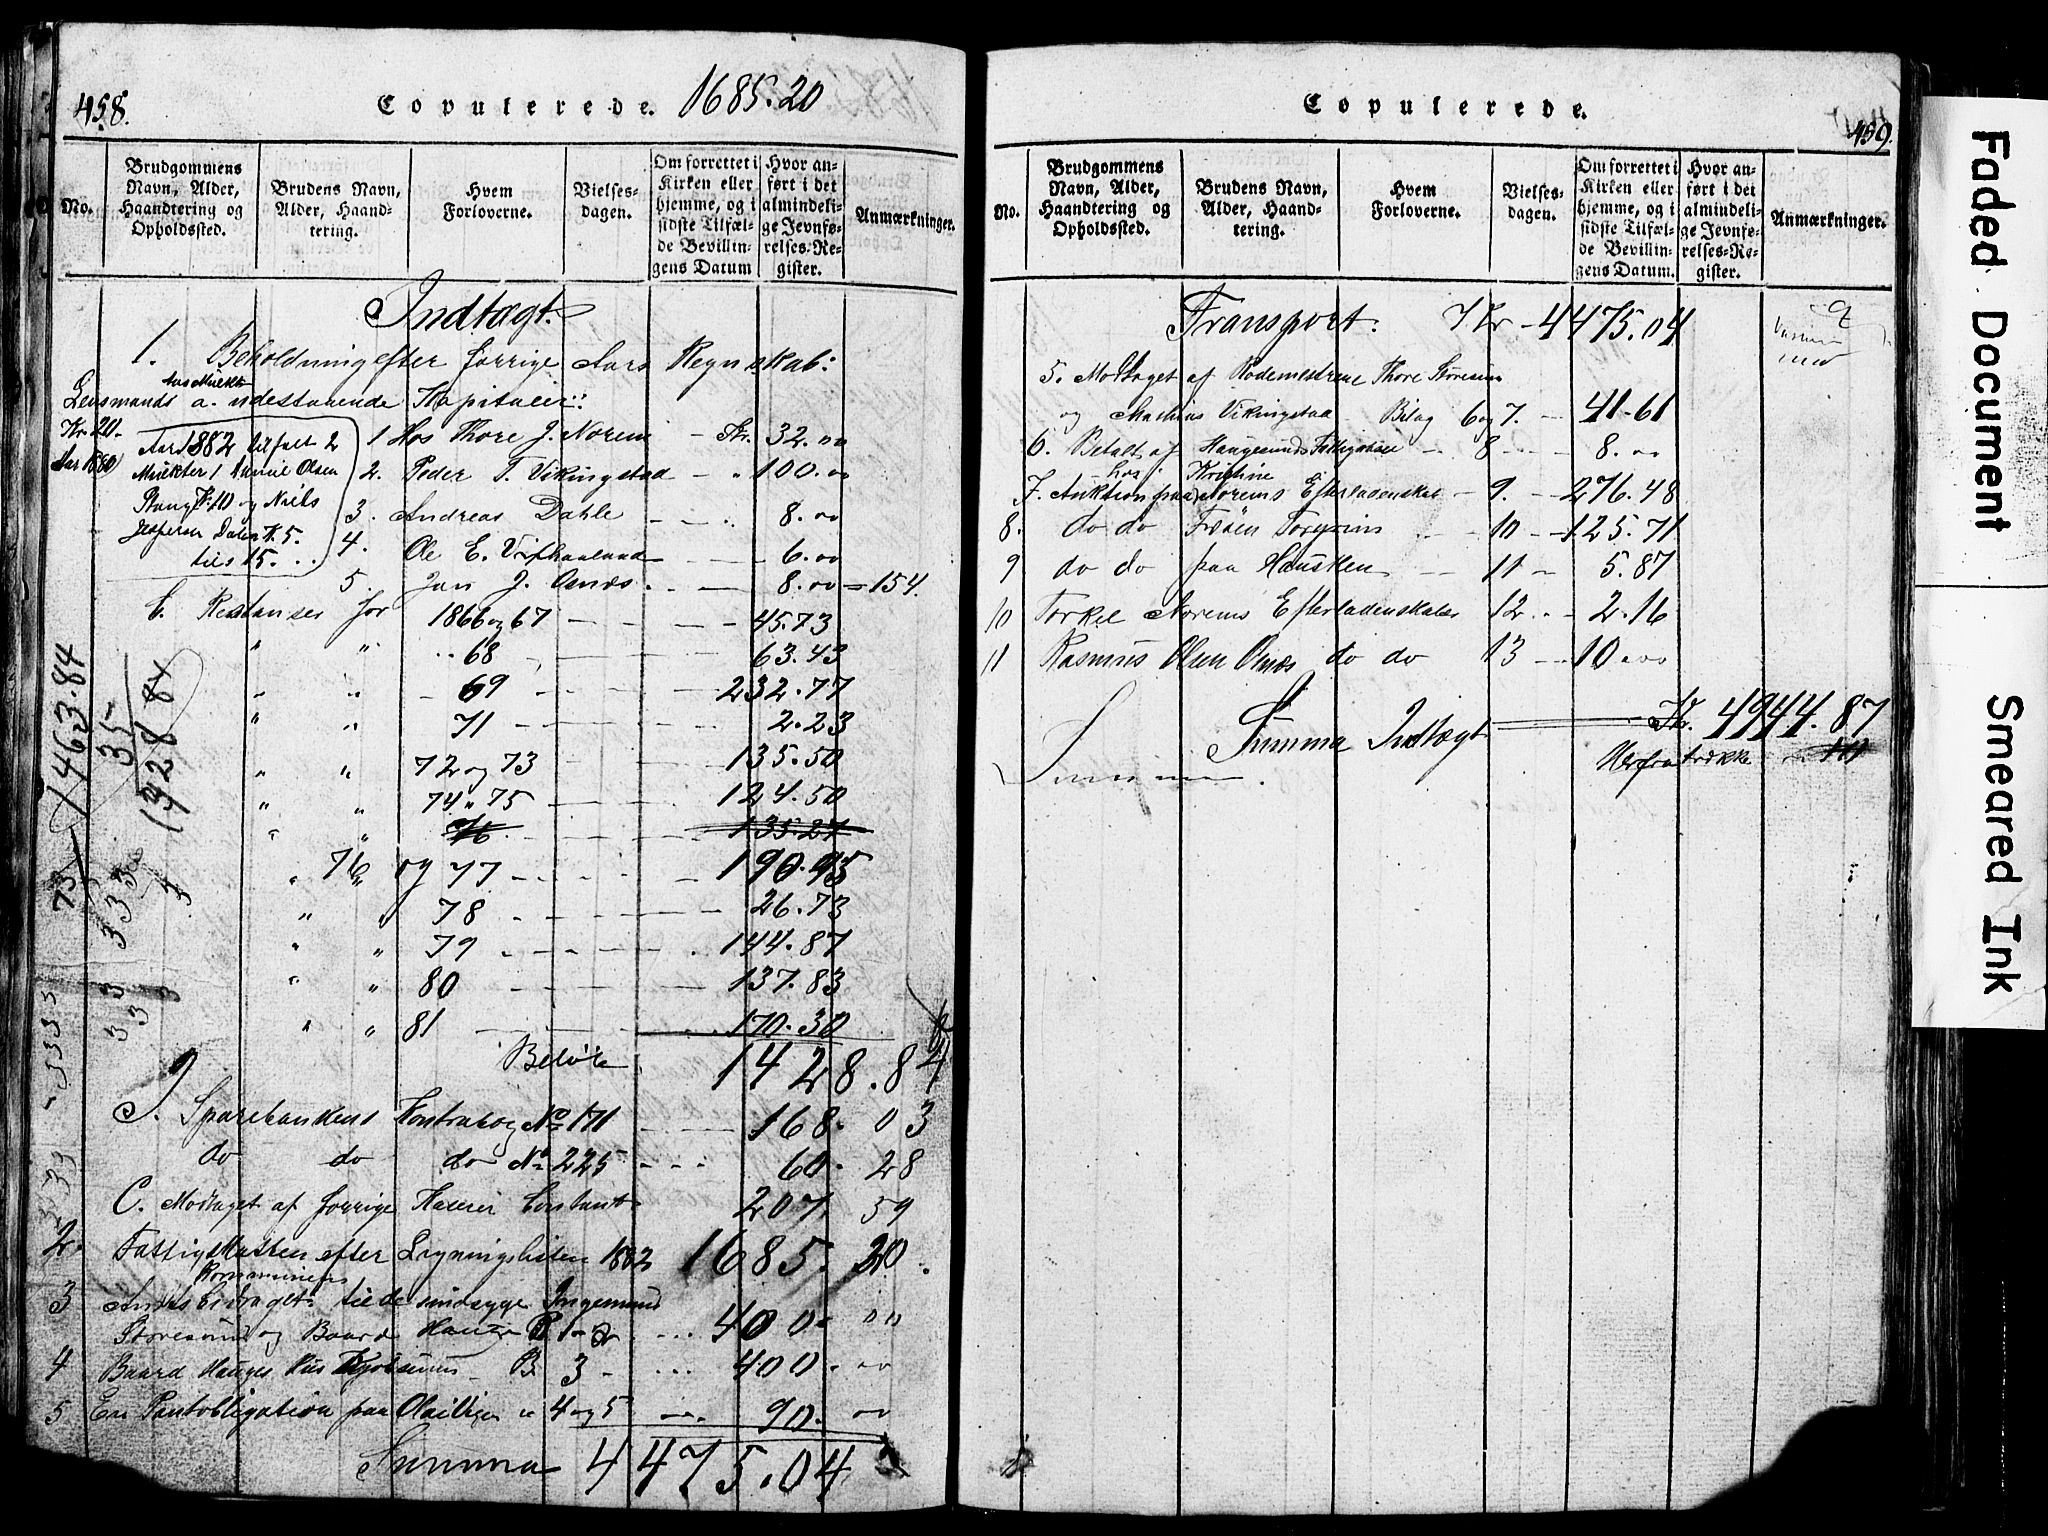 458.
Copulerede.
1685.20
No.
Brudgommens Navn, Alder, Haandtering og Opholdssted.
Brudens Navn, Alder, Haandtering.
Hvem Forloverne.
Vielsesdagen.
Om forrettet i Kirken eller hjemme, og i sidste Tilfælde Bevillingens Datum
Hvor anført i det almindelige Jevnførelses-Register.
Anmærkninger.
Indtægt.
1. Beholdning efter forrige Aars Regnskab:
a. udestaaende Kapitaler:
Lensmands
Kr. 20
Aar 1880
Aar 1882 tilfalt 2
Mulkter 1 Olsen
Stange K. 10 og Niels
Jespersen Dalen K. 5.
tils 15.
1 Hos Thore J. Norem - Kr. 32.00
2. Peder T. Vikingstad - " 100.00
3. Andreas Dahle - - 8.00
4. Ole E. - - 6.00
5. Jan J. Onæs - - 8.00 = 154.
b. Restanser for 1866 og 67 - - 45.73
" " 68 - - 63.43
" " 69 - - 232.77
" " 71 - - 2.23
" " 72 og 73 135.50
" " 74 " 75 - - 124.50
" " 76 - - 135.27
" 76 og 77 - - 190.95
" " 78 - - 26.73
" " 79 - - 144.87
" " 80 - - 137.83
" " 81 - - 170.30
Beløb 1428.84
Sparebankens Kontrabog No 171 - - 168.03
do do do No 225 - - 60.28
C. Modtaget af forrige Kasserer Constant 207 59
2. Fattigskatten efter Ligningslisten 1882 1685.20.
Kommunens
3 Amtsbidraget til de sindsyge Ingemund
Storesund og Baard Hauge B 1-2 ... 400.00
4 Baard Hauges Hus B 3 - ... 400.00
5 En Pantobligation paa " 4 og 5 ... 90.00
Summa 4475.04
1463.84
35
1428 84
Copulerede.
459.
No.
Brudgommens Navn, Alder, Haandtering og Opholdssted.
Brudens Navn, Alder, Haandtering.
Hvem Forloverne.
Vielsesdagen.
Om forrettet i Kirken eller hjemme, og i sidste Tilfælde Bevillingens Datum.
Hvor anført i det almindelige Jevnførelses-Register.
Anmærkninger.
Transport. Kr - 4475.04
5. Modtaget af Rodemestrene Thore Storesun
og Mathias Vikingstad Bilag 6 og 7. - 41.61
6. Betalt af Haugesunds Fattigkasse - 8 - - 8.00
hos Kristine
7. Auktion paa Norems Efterladenskab - 9. - 276.48
8. do do - 10 - 125.71
9 do do paa Hausken - 11 - 5.87
10 Torkel Norems Efterladenskaber 12 - - 2.16
11 Rasmus Olsen Onæs do do 13 - - 10.00
Summa Indtægt Kr. 4944.87
Herfra trække
Faded Document
Smeared Ink